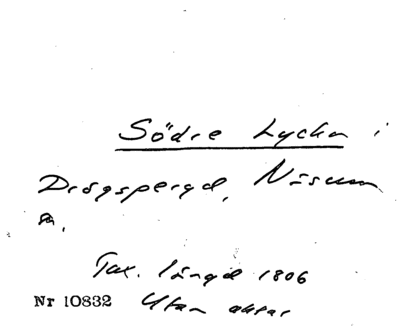 Södre Lycka i
Drögsperyd, Nösum
sn.
Tax. längd 1806
Nr 10832 Utan aktar